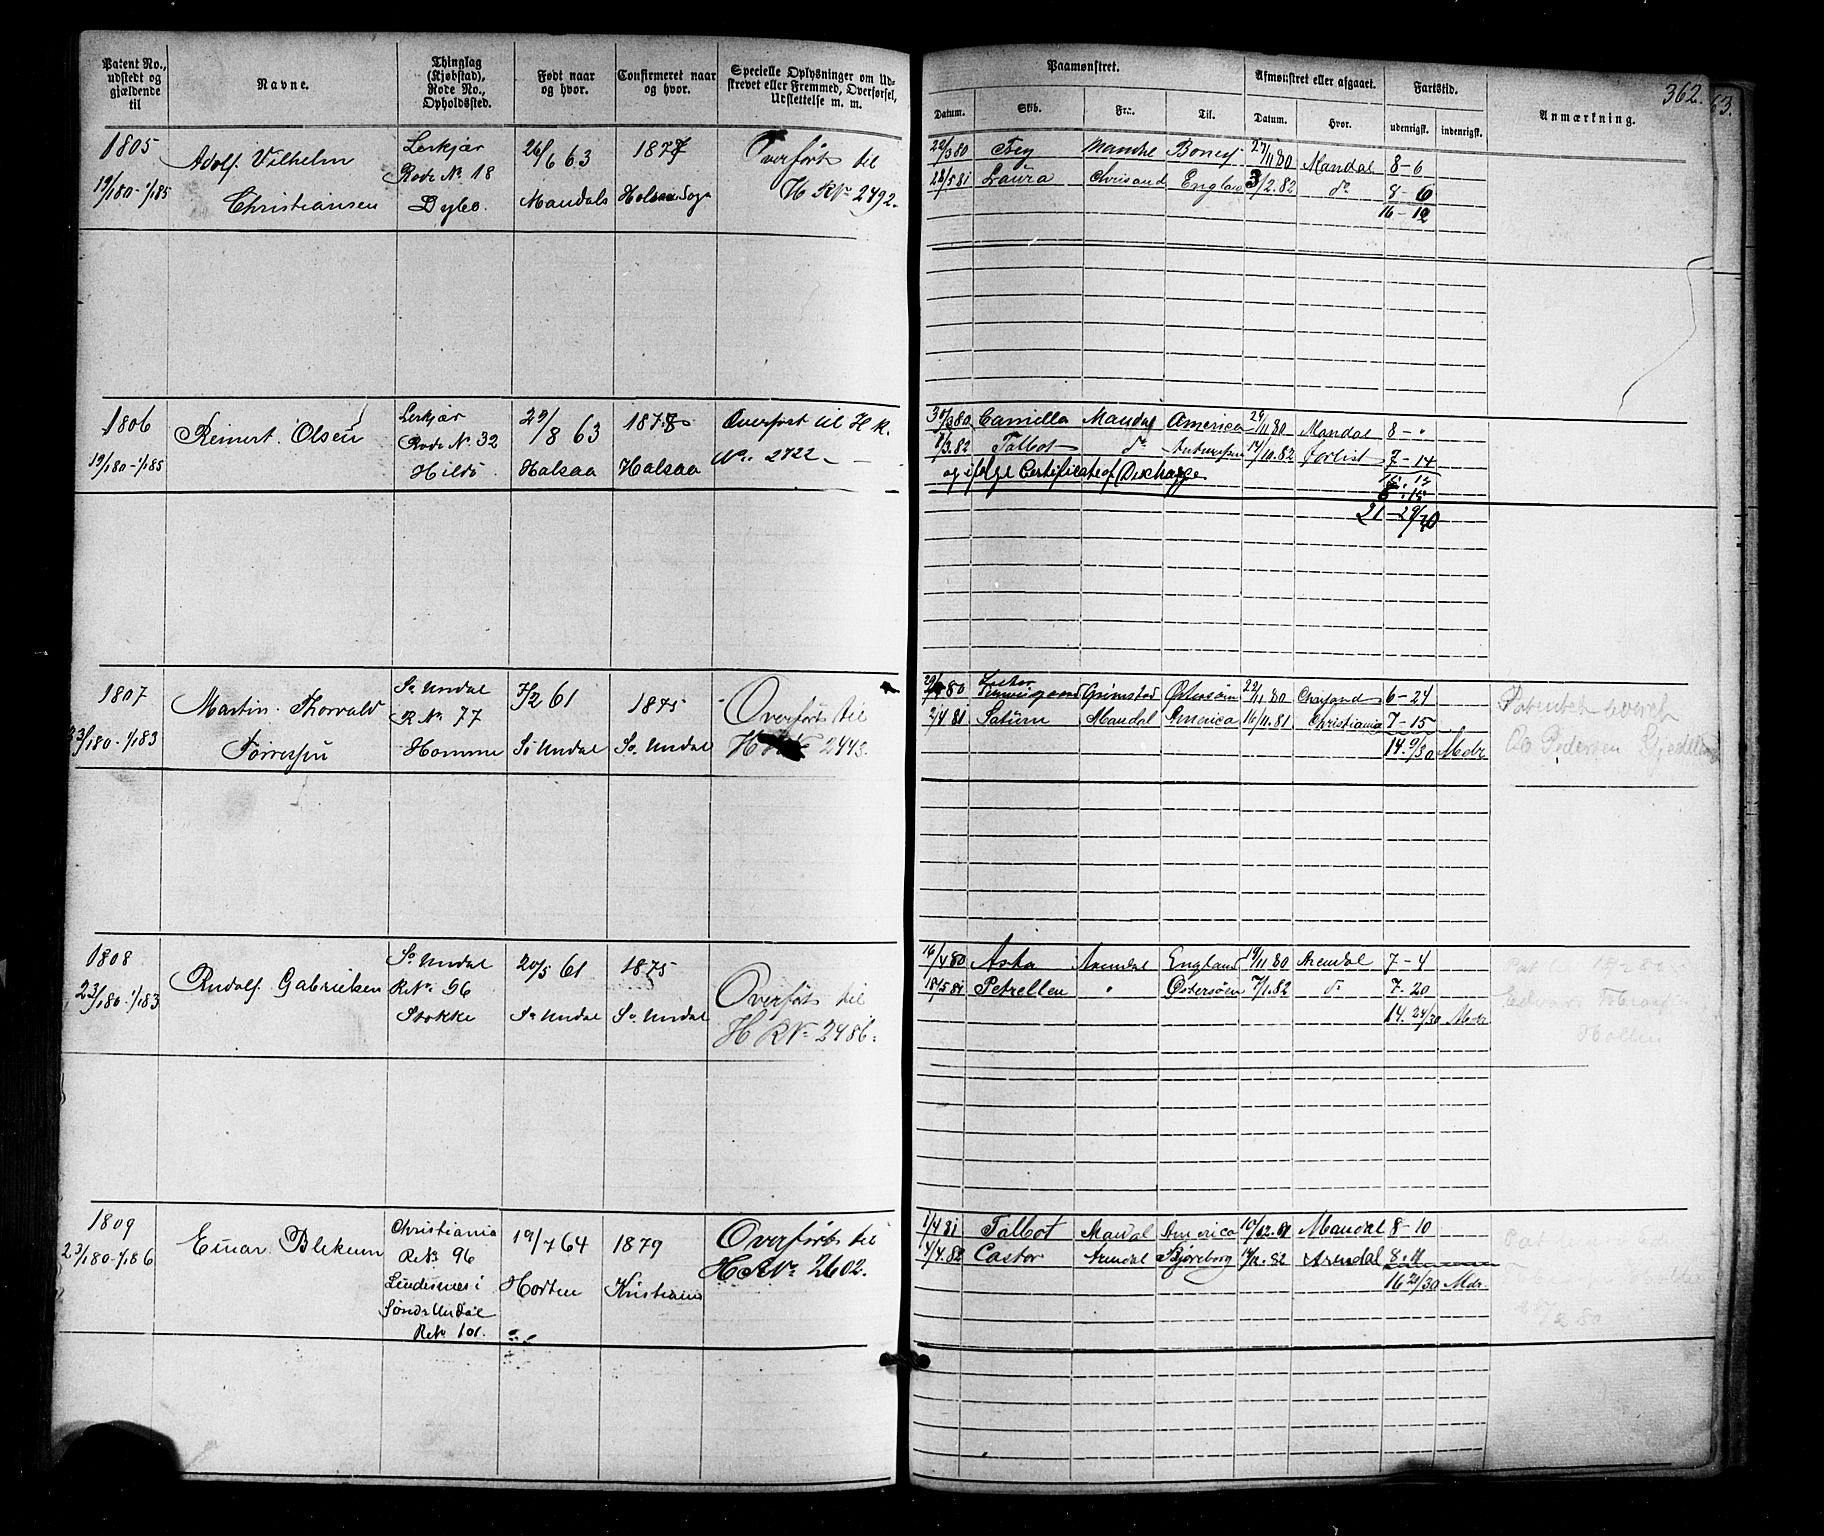 Patent No.,
udstedt og
gjældende
til
Navne.
Thinglag
(Kjøbstad),
Rode No.,
Opholdssted.
Født naar
og hvor.
Confirmeret naar
og hvor.
Specielle Oplysninger om Ud-
skrevet eller Fremmed, Overførsel,
Udslettelse m. m.
1805
19/1 80 - 1/1 85
Adolf Vilhelm
Christiansen
Rode No 18
Dybo.
26/6 63
Mandals
1877
Overført til
H R No 2492.
1806
19/1 80 - 1/1 85
Reinert Olsen
Rode No 32
Hilds
29/8 63
Halsaa
1878
Halsaa
Overført til H R.
No 2722
1807
23/1 80 - 1/1 83
Martin Thorvald
So Undal
R No 77
Homme
7/2 61
So Undal
1875
So Undal
Overført til
2443.
1808
23/1 80 - 1/1 83
Rudolf Gabrielsen
So Undal
R No 96
Stokke
20/5 61
So Undal
1875
So Undal
Overført til
H R No 2486.
1809
23/1 80 - 1/1 86
Einar Blekum
Christiania
R No 96
Lindesnes i
Søndr Undal
R No 101.
19/7 64
Horten
1879
Kristiania
Overført til
H R No 2602.
362.
63.
Paamønstret.
Afmønstret eller afgaaet.
Fartstid.
Anmærkning.
Datum.
Skib.
Fra:
Til.
Datum.
Hvor.
udenrigsk.
indenrigsk.
22/3 80 Mandal 27/11 80 Mandal 8-6
28/5 81 Laura Chrisand England 3/2. 82 do 8-6
16-12
Camilla Mandal America 29/11 80 Mandal 8-"
8/3. 82 Talbot do 14/10. 82 Forlist 7-14
og ifølge Certificate of Discharge
15.15
21-29/30
Grimstad Østersøen 22/11 80 6-24
2/4 81 Saturn Mandal America 16/11. 81 Christiania 7-15
14. 9/30 Mdr.
Pedersen
16/4 80 Asta Arendal England 19/11 80 Arendal 7-4
18/5 81 Petrellen " Østersøen 7/1. 82 do 7-20
14. 24/30 Mdr.
1/4 81 Talbot Mandal America 10/12. 81 Mandal 8-10
4/4. 82 Castor Arendal Bjørneborg 82 Arendal 8.11
16 21/30 Mdr.